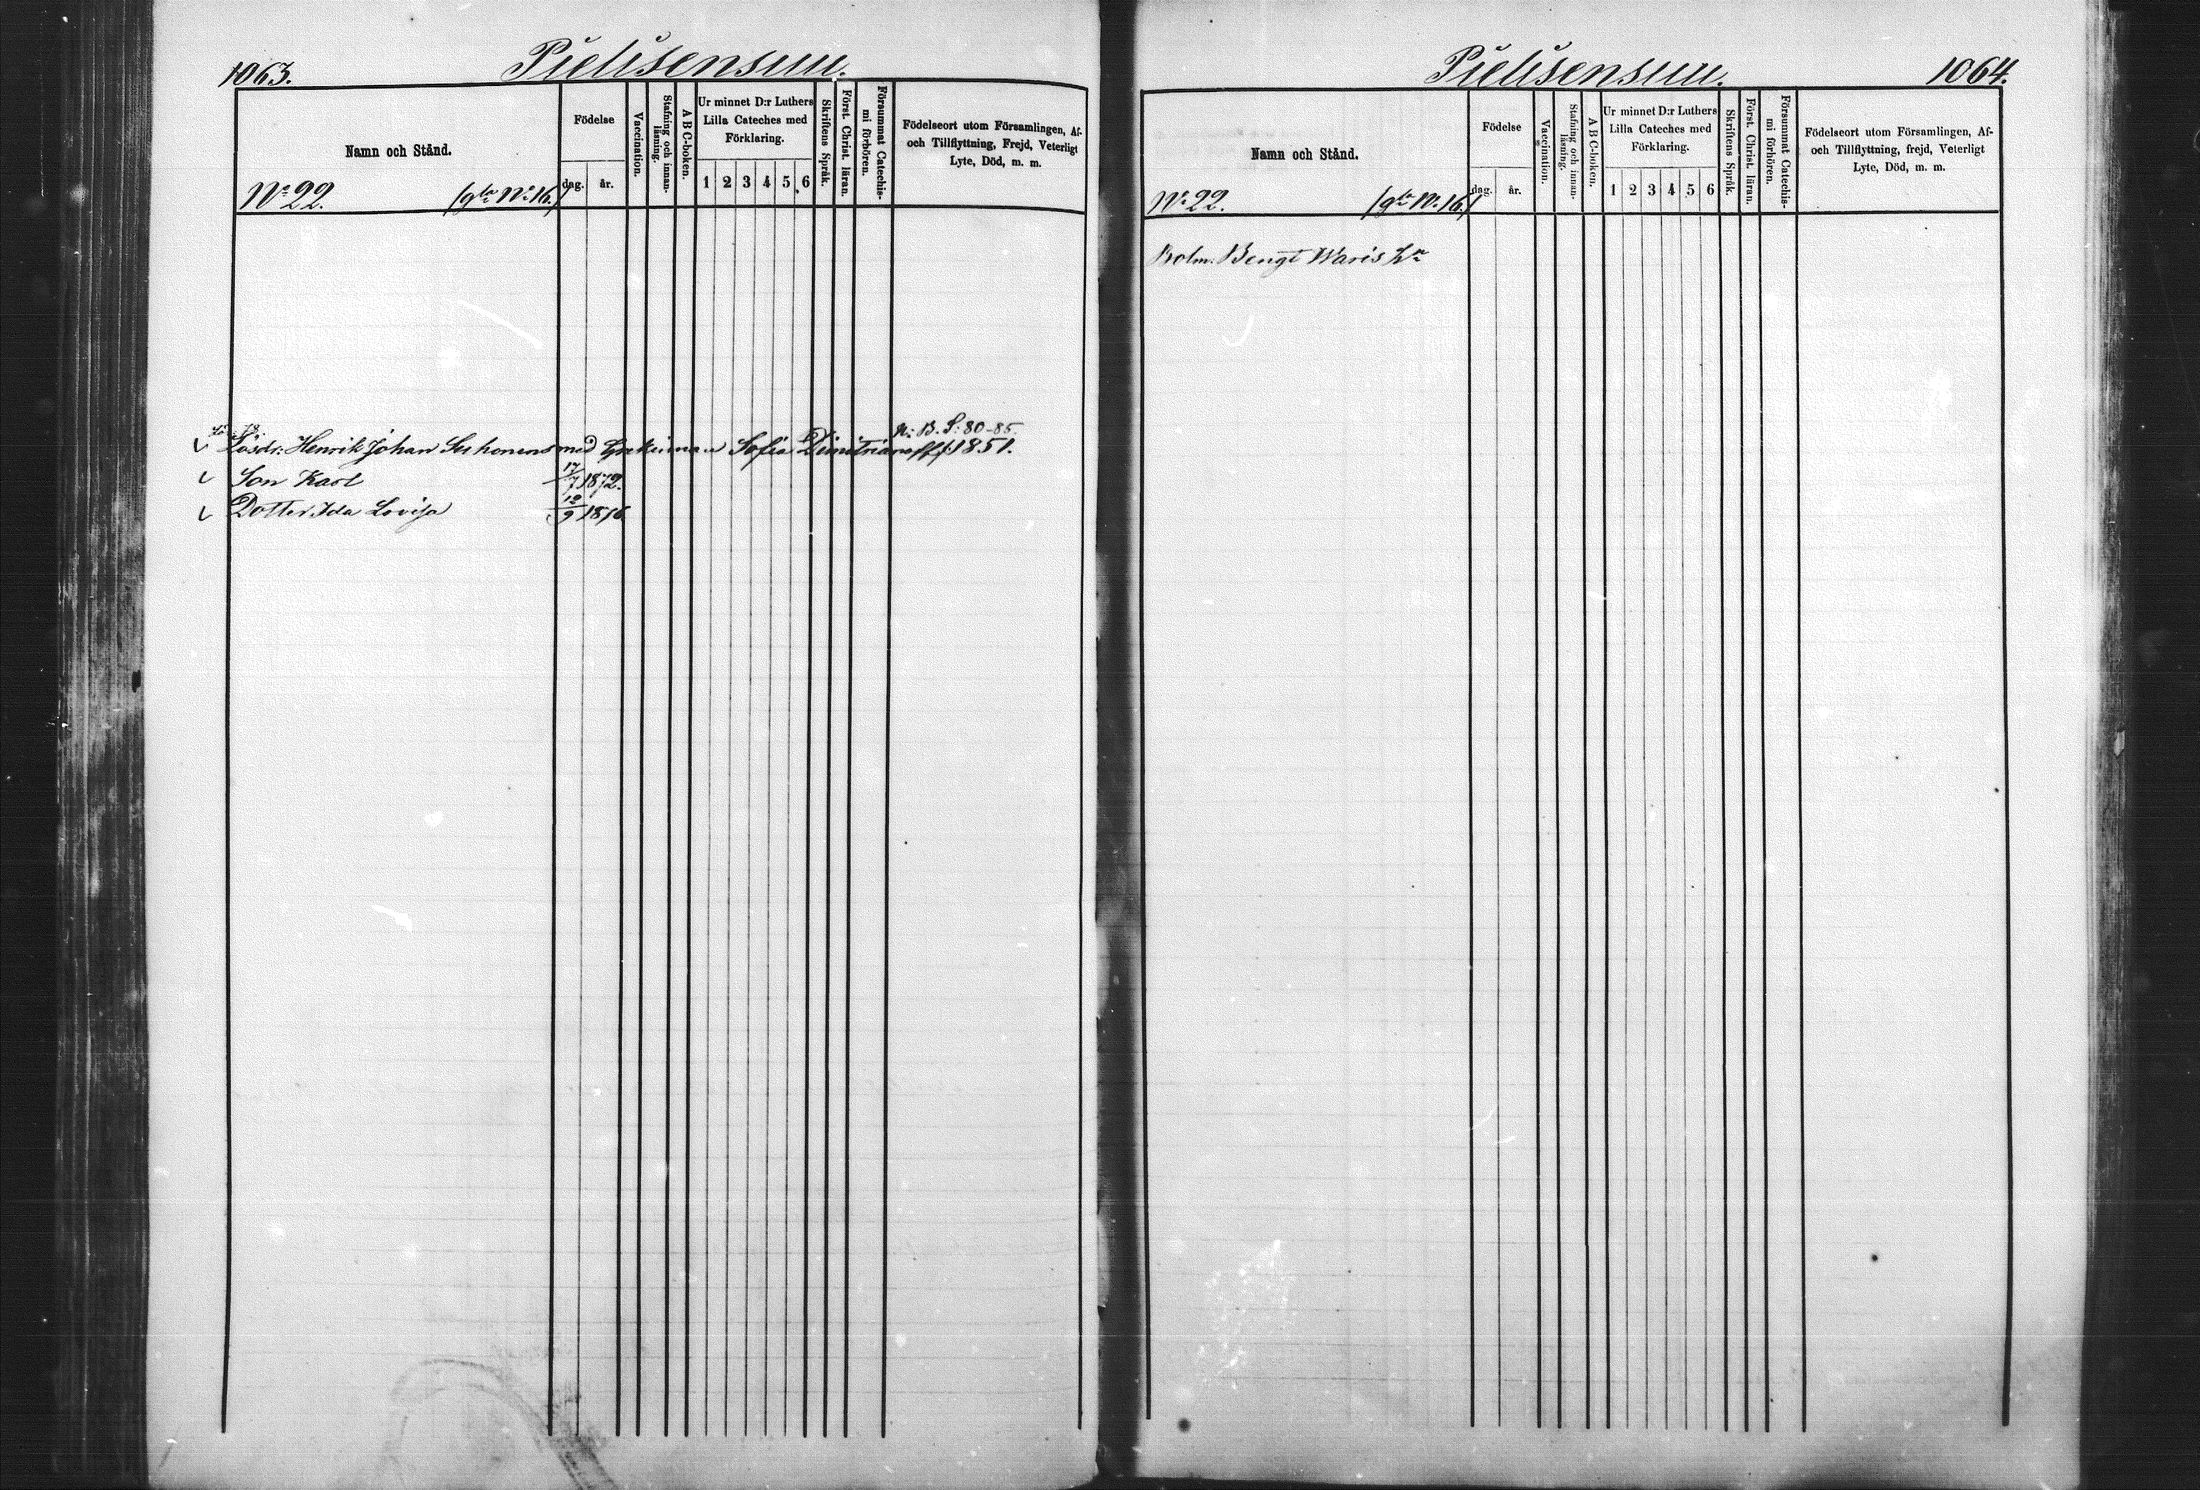 1063.
Pielisensuu.
Namn och Stånd.
Födelse
dag.
år.
Vaccination.
Stafning och innan-
läsning.
A B C-boken.
Ur minnet D:r Luthers
Lilla Cateches med
Förklaring.
1 2 3 4 5 6
Skriftens Språk.
Först. Christ. läran.
Försummat Catechis-
mi förhören.
Födelseort utom Församlingen, Af-
och Tillflyttning, Frejd, Veterligt
Lyte, Död, m. m.
No 22. /gla No 16./
N: B. S: 80-85.
Lösdr: Henrik Johan Suhonens med Grekinnan Sofia Dimitrianoff f. 1851.
Son Karl 17/7 1872.
Dotter Ida Lovisa 12/9 1876
Pielisensuu.
1064.
Namn och Stånd.
Födelse
dag.
år.
Vaccination.
Stafning och innan-
läsning.
A B C-boken.
Ur minnet D:r Luthers
Lilla Cateches med
Förklaring.
1 2 3 4 5 6
Skriftens Språk.
Först. Christ. läran.
Försummat Catechis-
mi förhören.
Födelseort utom Församlingen, Af-
och Tillflyttning, frejd, Veterligt
Lyte, Död, m. m.
No 22. /gla No 16/
Bolm. Bengt Waris